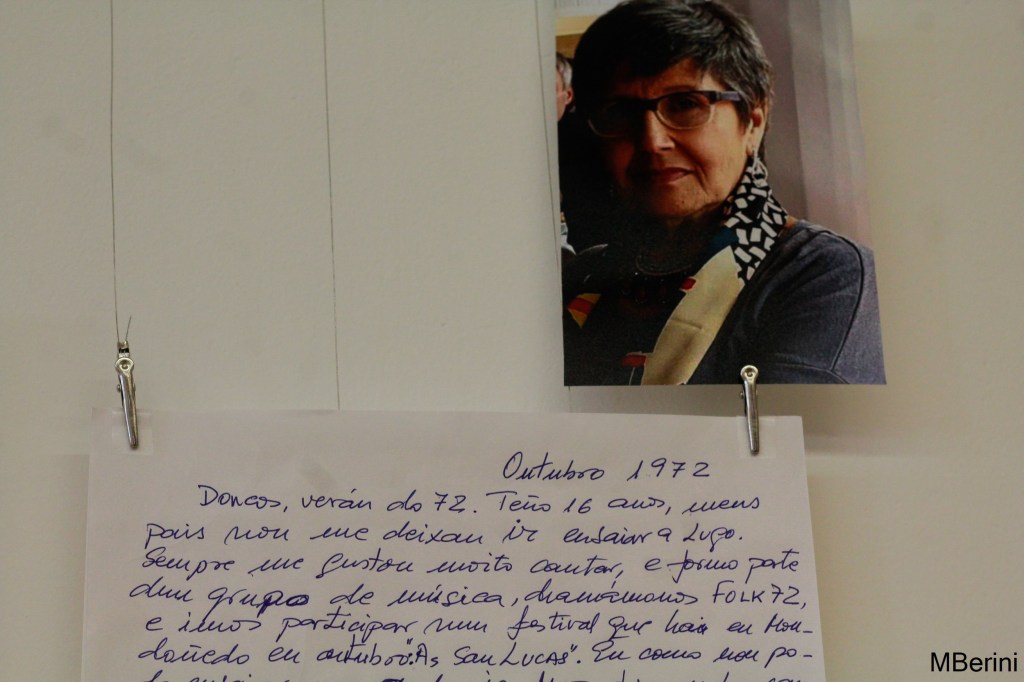 Outubro 1972
Doncos, verán do 72. Teño 16 anos, meus
pais non me deixan ir ensaiar a Lugo.
Sempre me gustou moito cantar, e formo parte
dun grupo de música, chamámonos FOLK 72,
e imos participar nun festival que hai en Mon-
doñedo en outubro: "As San Lucas". Eu como non po-
MBerini